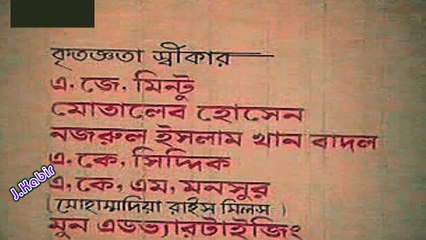 কৃতজ্ঞতা স্বীকার
এ. জে. মিন্টু
মোতালেব হোসেন
নজরুল ইসলাম খান বাদল
এ. কে, সিদ্দিক
এ. কে, এম, মনসুর
(মোহাম্মাদিয়া রাইস মিলস)
মুন এডভ্যারটাইজিং
J.Kabir